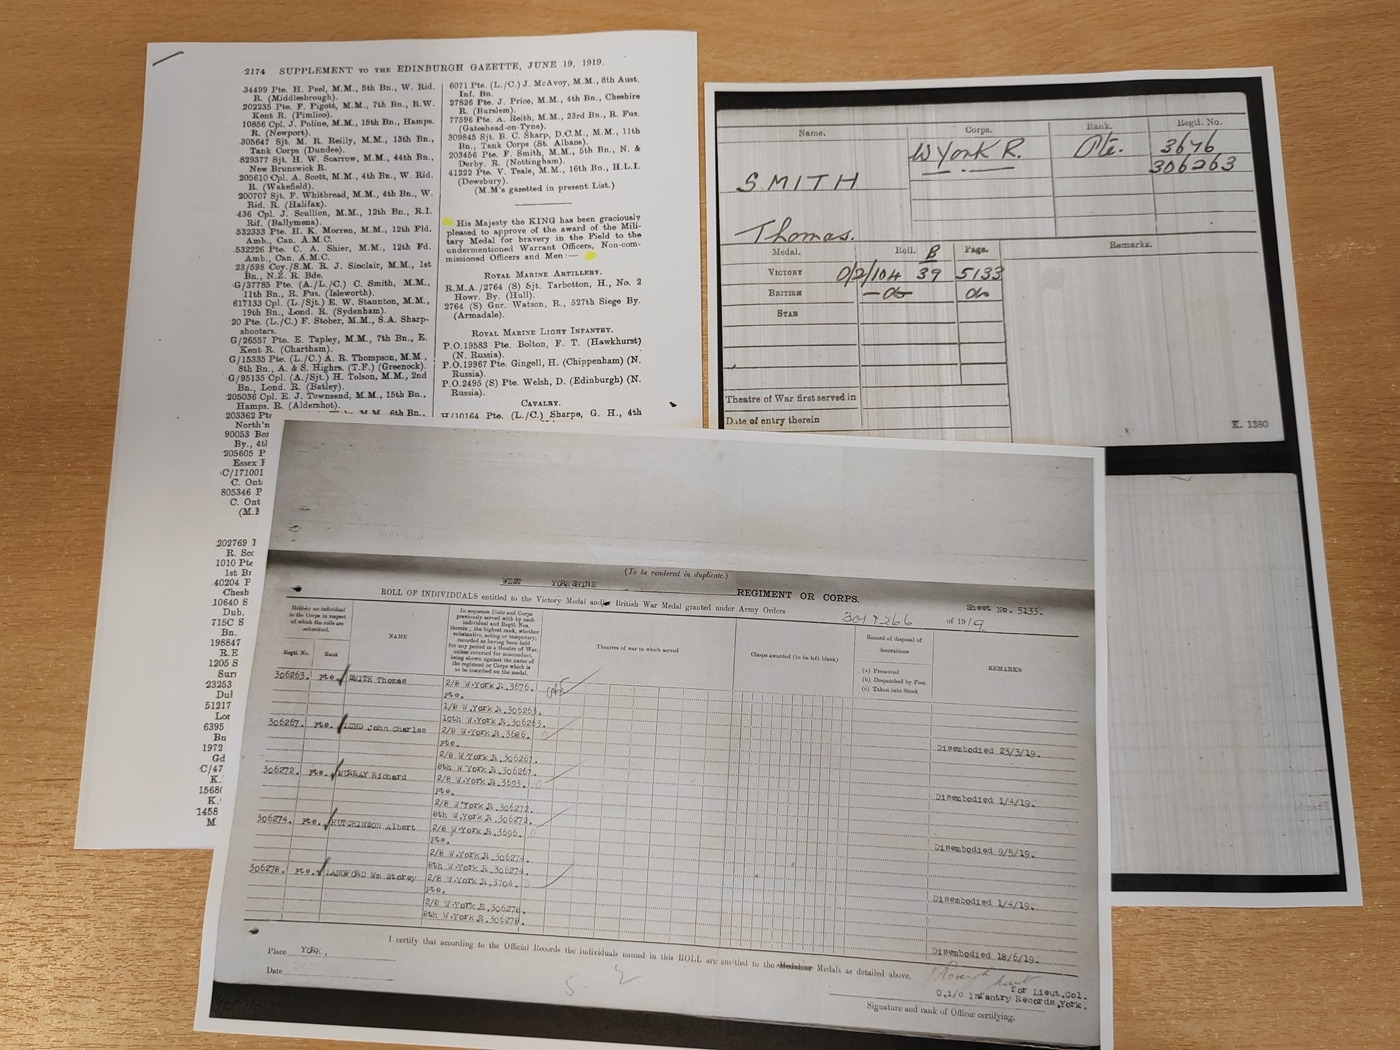 2174 SUPPLEMENT TO THE EDINBURGH GAZETTE, JUNE 19, 1919.
34499 Pte. H. Peel, M.M., 5th Bn., W. Rid.
R. (Middlesbrough).
202235 Pte. F. Pigott, M.M., 7th Bn., R.W.
Kent R. (Pimlico).
10856 Cpl. J. Poline, M.M., 15th Bn., Hamps.
R. (Newport).
305647 Sjt. M. R. Reilly, M.M., 13th Bn.,
Tank Corps (Dundee).
829377 Sjt. H. W. Scarrow, M.M., 44th Bn.,
New Brunswick R.
205610 Cpl. A. Scott, M.M., 4th Bn., W. Rid.
R. (Wakefield).
200707 Sjt. F. Whitbread, M.M., 4th Bn., W.
Rid. R. (Halifax).
436 Cpl. J. Scullion, M.M., 12th Bn., R.I.
Rif. (Ballymena).
532333 Pte. H. K. Morren, M.M., 12th Fld.
Amb., Can. A.M.C.
532226 Pte. C. A. Shier, M.M., 12th Fd.
Amb., Can. A.M.C.
23/598 Coy./S.M. R. J. Sinclair, M.M., 1st
Bn., N.Z. R. Bde.
G/37785 Pte. (A./L./C.) C. Smith, M.M.,
11th Bn., R. Fus. (Isleworth).
617133 Cpl. (L./Sjt.) E. W. Staunton, M.M.,
19th Bn., Lond. R. (Sydenham).
20 Pte. (L./C.) F. Stober, M.M., S.A. Sharp-
shooters.
G/26557 Pte. E. Tapley, M.M., 7th Bn., E.
Kent R. (Chartham).
G/15335 Pte. (L./C.) A. R. Thompson, M.M.,
8th Bn., A. & S. Highrs. (T.F.) (Greenock).
G/95135 Cpl. (A./Sjt.) H. Tolson, M.M., 2nd
Bn., Lond. R. (Batley).
205036 Cpl. E. J. Townsend, M.M., 15th Bn.,
Hamps. R. (Aldershot).
203362 Pte
M.M., 6th Bn.,
North'n
90053 Bo
By., 4th
205605 P
Essex
C/171001
C. Ont
805346 P
C. Ont
(M.
202769
R. Sc
1010 Pte
1st B
40204 P
Chesh
10640 S
Dub.
715C S
Bn.
198847
R.E
1205 S
Surr
23253
Dul
51217
Lo
6395
Bn
1972
Gd
C/47
K.
1568
K.
1458
M
6071 Pte. (L./C.) J. McAvoy, M.M., 8th Aust.
Inf. Bn.
27826 Pte. J. Price, M.M., 4th Bn., Cheshire
R. (Burslem).
77596 Pte. A. Reith, M.M., 23rd Bn., R. Fus.
(Gateshead-on-Tyne).
309845 Sjt. B. C. Sharp, D.C.M., M.M., 11th
Bn., Tank Corps (St. Albans).
203456 Pte. F. Smith, M.M., 5th Bn., N. &
Derby. R. (Nottingham).
41222 Pte. V. Teale, M.M., 16th Bn., H.L.I.
(Dewsbury).
(M.M's gazetted in present List.)
His Majesty the KING has been graciously
pleased to approve of the award of the Mili-
tary Medal for bravery in the Field to the
undermentioned Warrant Officers, Non-com-
missioned Officers and Men:—
ROYAL MARINE ARTILLERY.
R.M.A./2764 (S) Sjt. Tarbotton, H., No. 2
Howr. By. (Hull).
2764 (S) Gnr. Watson, R., 527th Siege By.
(Armadale).
ROYAL MARINE LIGHT INFANTRY.
P.O.19583 Pte. Bolton, F. T. (Hawkhurst)
(N. Russia).
P.O.19967 Pte. Gingell, H. (Chippenham) (N.
Russia).
P.O.2495 (S) Pte. Welsh, D. (Edinburgh) (N.
Russia).
CAVALRY.
H/10164 Pte. (L./C.) Sharpe, G. H., 4th
Name. Corps. Rank. Regtl. No.
W York R. Pte. 3676
306263
SMITH
Thomas.
Medal. Roll. Page. Remarks.
B
VICTORY O/2/104 39 5133
BRITISH —do— do
STAR
Theatre of War first served in
Date of entry therein
K. 1380
(To be rendered in duplicate.)
WEST YORKSHIRE REGIMENT OR CORPS.
Sheet No. 5133.
ROLL OF INDIVIDUALS entitled to the Victory Medal and/or British War Medal granted under Army Orders 301 & 266 of 1919
Held by an individual
in the Corps in respect
of which the rolls are
submitted.
Regtl. No. Rank
NAME
In sequence Units and Corps
previously served with by each
individual and Regtl. Nos.
therein; the highest rank, whether
substantive, acting or temporary,
recorded as having been held
for any period in a theatre of War,
unless reverted for misconduct,
being shown against the name of
the regiment or Corps which is
to be inscribed on the medal.
Theatres of war in which served
Clasps awarded (to be left blank)
Record of disposal of
decorations
(a) Presented
(b) Despatched by Post
(c) Taken into Stock
REMARKS
306263. Pte. SMITH Thomas 2/8 W.York R.3676.
Pte.
1/8 W.York R.306263.
10th W.York R.306263.
Disembodied 23/3/19.
306267. Pte. LUND John Charles 2/8 W.York R.3686.
Pte.
2/8 W.York R.306267.
8th W.York R.306267.
Disembodied 1/4/19.
306272. Pte. MURRAY Richard 2/8 W.York R.3693.
Pte.
2/8 W.York R.306272.
8th W.York R.306272.
Disembodied 9/5/19.
306274. Pte. HUTCHINSON Albert 2/8 W.York R.3696.
Pte.
2/8 W.York R.306274.
8th W.York R.306274.
Disembodied 1/4/19.
306278. Pte. LANGFORD Wm Storey 2/8 W.York R.3704.
Pte.
2/8 W.York R.306278.
8th W.York R.306278.
Disembodied 18/6/19.
I certify that according to the Official Records the individuals named in this ROLL are entitled to the Medals as detailed above.
Place YORK.
Date
5-2
for Lieut.Col.
O.i/c Infantry Records,York.
Signature and rank of Officer certifying.